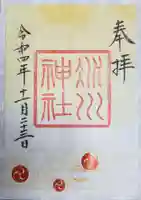 奉拝
氷川神社
令和四年十一月二十三日